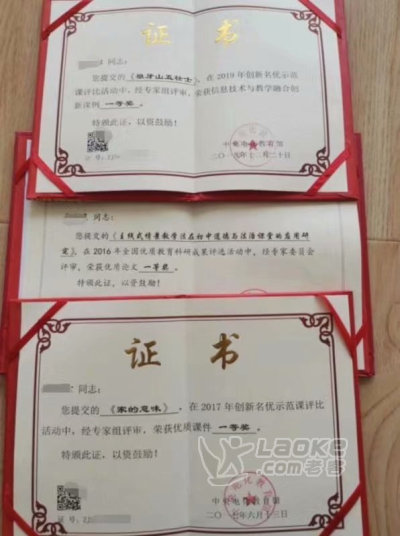 证书
同志：
您提交的《狼牙山五壮士》，在2019年创新名优示范
课评比活动中，经专家组评审，荣获信息技术与教学融合创
新课例 一等奖。
特颁此证，以资鼓励！
中央电化教育馆
二〇一九年十二月二十日
同志：
您提交的《主线式情景教学法在初中道德与法治课堂的应用研
究》，在2016年全国优质教育科研成果评选活动中，经专家委员会
评审，荣获优质论文 一等奖。
特颁此证，以资鼓励！
证书
同志：
您提交的 《家的意味》，在2017年创新名优示范课评比
活动中，经专家组评审，荣获优质课件 一等奖。
特颁此证，以资鼓励！
中央电化教育馆
二〇一七年六月十三日
证 号：ZJ
LAOKE
.com老客